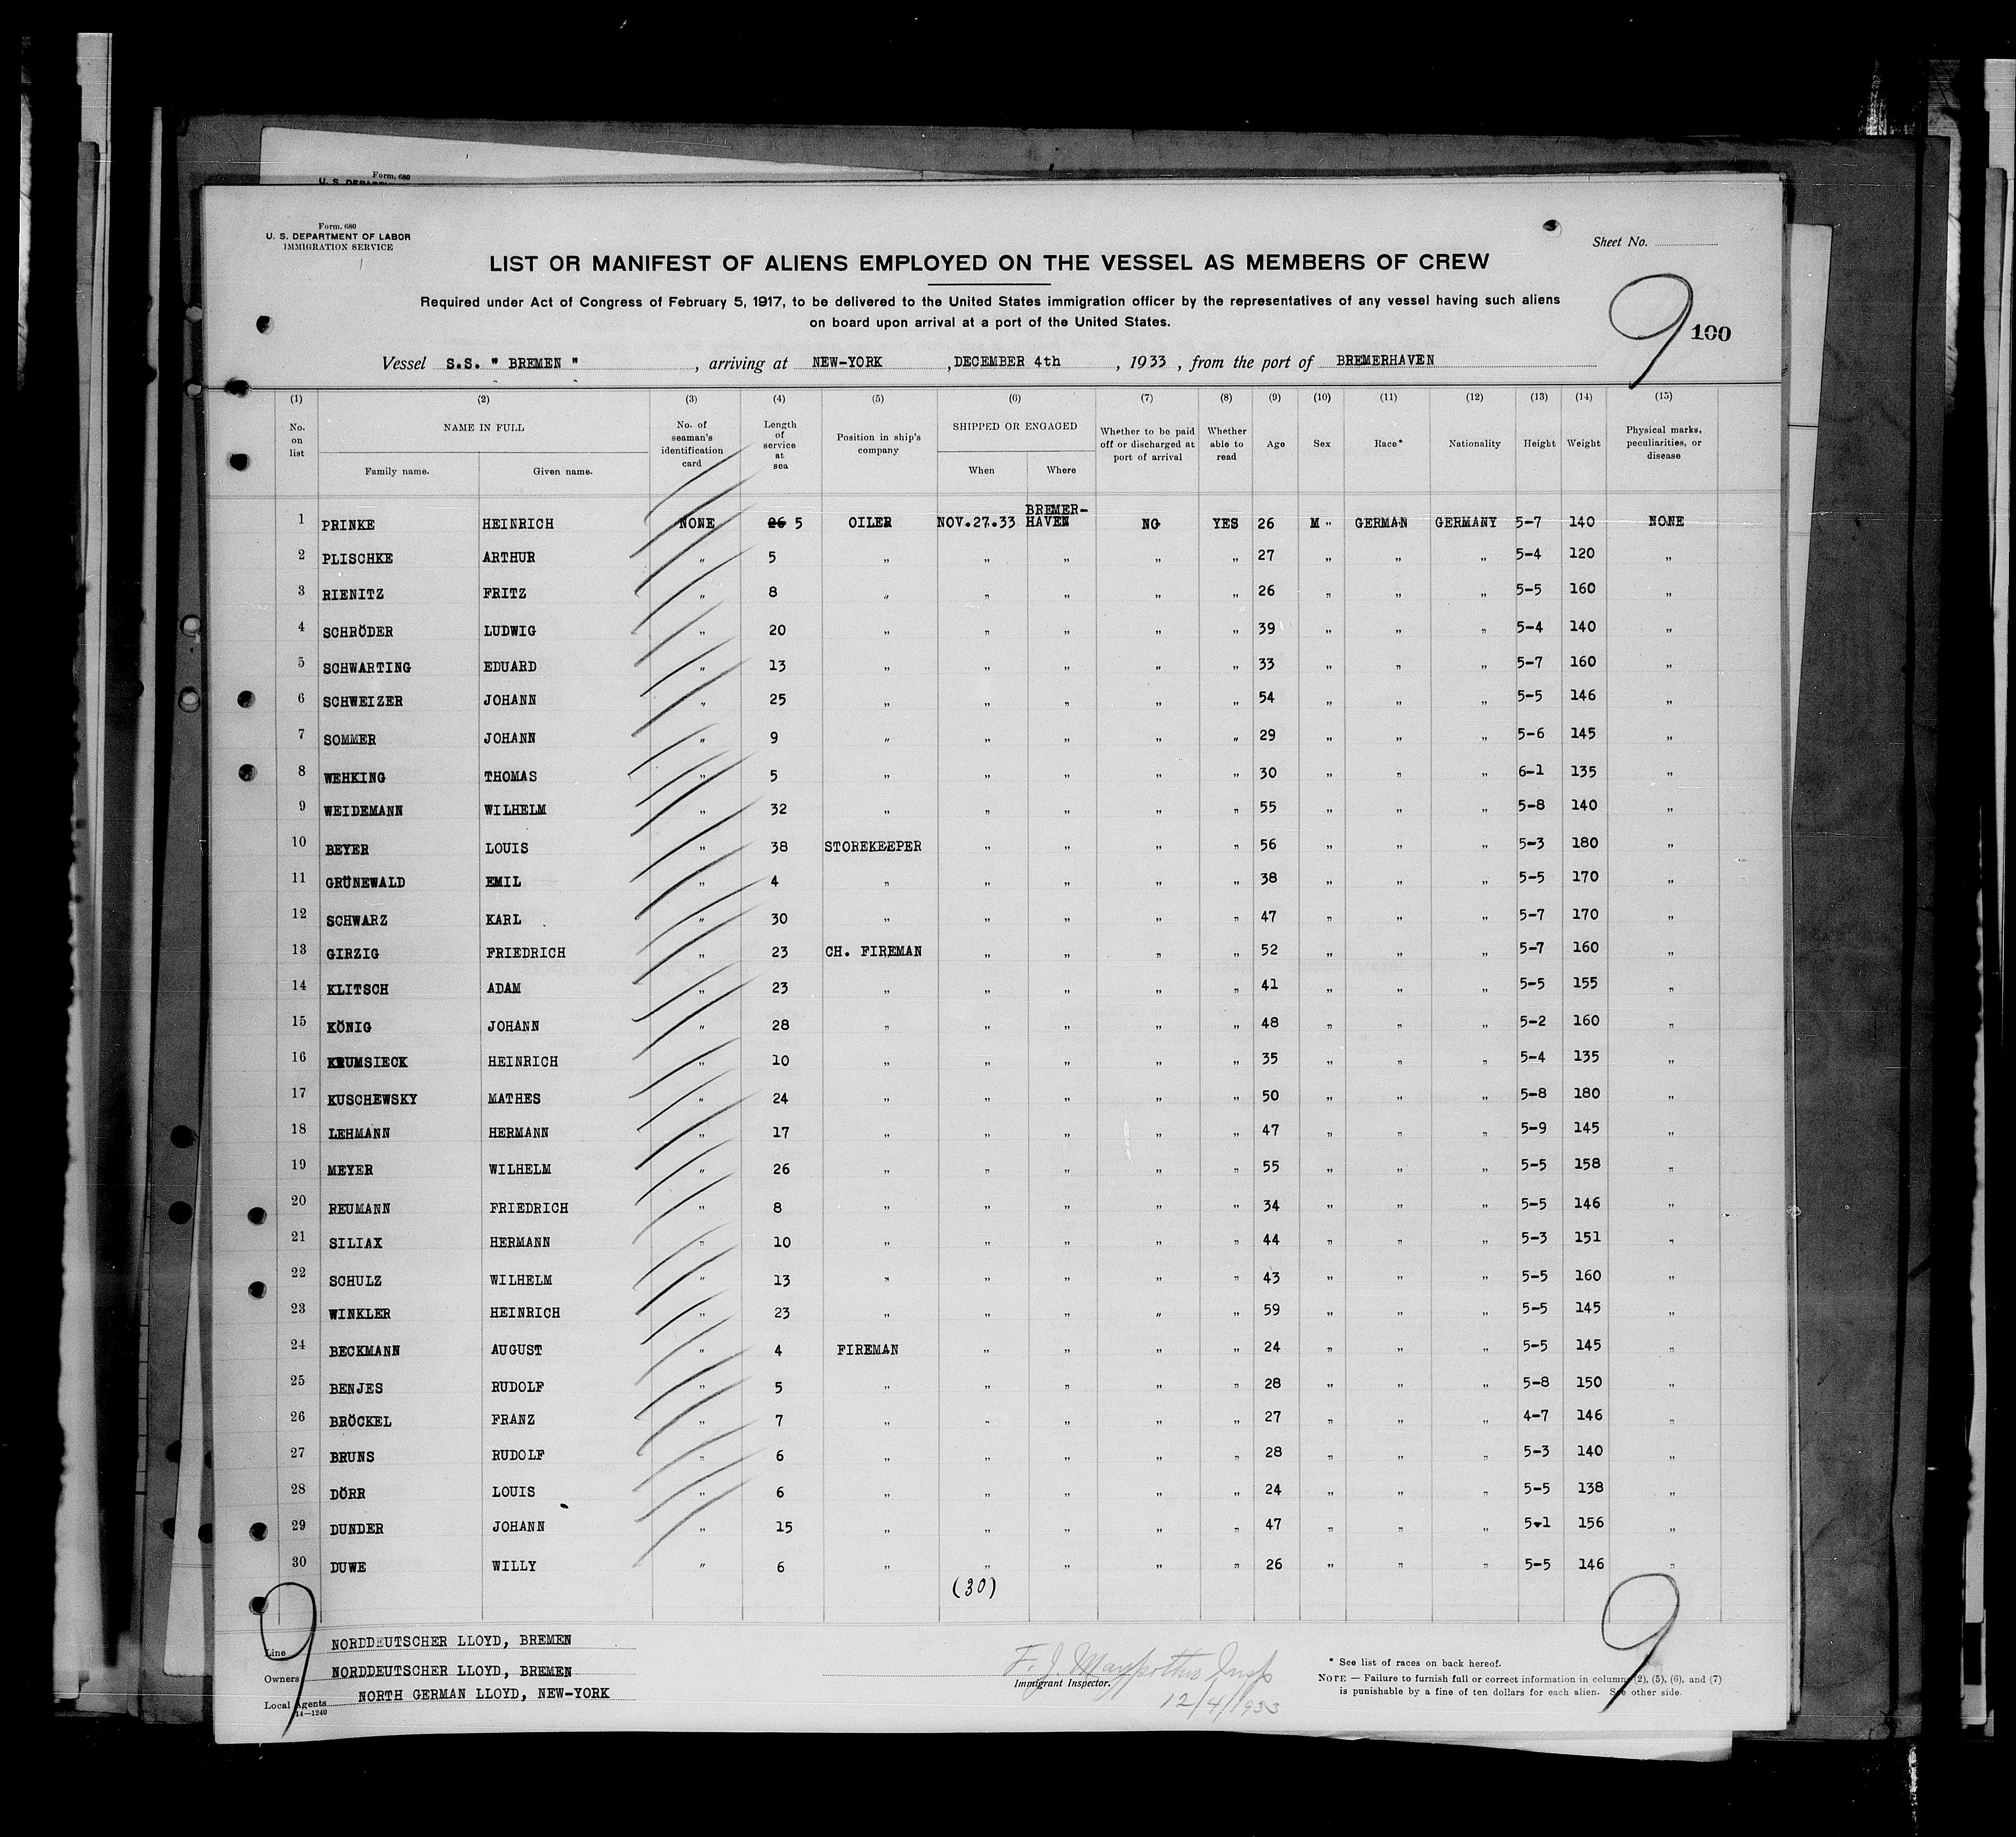 Form. 680
Form. 680
U. S. DEPARTMENT OF LABOR
IMMIGRATION SERVICE
Sheet No.
LIST OR MANIFEST OF ALIENS EMPLOYED ON THE VESSEL AS MEMBERS OF CREW
Required under Act of Congress of February 5, 1917, to be delivered to the United States immigration officer by the representatives of any vessel having such aliens
on board upon arrival at a port of the United States.
9 100
Vessel S.S. " BREMEN " , arriving at NEW-YORK , DECEMBER 4th , 1933 , from the port of BREMERHAVEN
(1) (2) (3) (4) (5) (6) (7) (8) (9) (10) (11) (12) (13) (14) (15)
No. on list NAME IN FULL Family name. Given name. No. of seaman's identification card Length of service at sea Position in ship's company SHIPPED OR ENGAGED When Where Whether to be paid off or discharged at port of arrival Whether able to read Age Sex Race* Nationality Height Weight Physical marks, peculiarities, or disease
1 PRINKE HEINRICH NONE 26 5 OILER NOV.27.33 BREMER-HAVEN NO YES 26 M " GERMAN GERMANY 5-7 140 NONE
2 PLISCHKE ARTHUR " 5 " " " " " 27 " " " 5-4 120 "
3 RIENITZ FRITZ " 8 " " " " " 26 " " " 5-5 160 "
4 SCHRÖDER LUDWIG " 20 " " " " " 39 " " " 5-4 140 "
5 SCHWARTING EDUARD " 13 " " " " " 33 " " " 5-7 160 "
6 SCHWEIZER JOHANN " 25 " " " " " 54 " " " 5-5 146 "
7 SOMMER JOHANN " 9 " " " " " 29 " " " 5-6 145 "
8 WEHKING THOMAS " 5 " " " " " 30 " " " 6-1 135 "
9 WEIDEMANN WILHELM " 32 " " " " " 55 " " " 5-8 140 "
10 BEYER LOUIS " 38 STOREKEEPER " " " " 56 " " " 5-3 180 "
11 GRÜNEWALD EMIL " 4 " " " " " 38 " " " 5-5 170 "
12 SCHWARZ KARL " 30 " " " " " 47 " " " 5-7 170 "
13 GIRZIG FRIEDRICH " 23 CH. FIREMAN " " " " 52 " " " 5-7 160 "
14 KLITSCH ADAM " 23 " " " " " 41 " " " 5-5 155 "
15 KÖNIG JOHANN " 28 " " " " " 48 " " " 5-2 160 "
16 KRUMSIECK HEINRICH " 10 " " " " " 35 " " " 5-4 135 "
17 KUSCHEWSKY MATHES " 24 " " " " " 50 " " " 5-8 180 "
18 LEHMANN HERMANN " 17 " " " " " 47 " " " 5-9 145 "
19 MEYER WILHELM " 26 " " " " " 55 " " " 5-5 158 "
20 REUMANN FRIEDRICH " 8 " " " " " 34 " " " 5-5 146 "
21 SILIAX HERMANN " 10 " " " " " 44 " " " 5-3 151 "
22 SCHULZ WILHELM " 13 " " " " " 43 " " " 5-5 160 "
23 WINKLER HEINRICH " 23 " " " " " 59 " " " 5-5 145 "
24 BECKMANN AUGUST " 4 FIREMAN " " " " 24 " " " 5-5 145 "
25 BENJES RUDOLF " 5 " " " " " 28 " " " 5-8 150 "
26 BRÖCKEL FRANZ " 7 " " " " " 27 " " " 4-7 146 "
27 BRUNS RUDOLF " 6 " " " " " 28 " " " 5-3 140 "
28 DÖRR LOUIS " 6 " " " " " 24 " " " 5-5 138 "
29 DUNDER JOHANN " 15 " " " " " 47 " " " 5-1 156 "
30 DUWE WILLY " 6 " " " " " 26 " " " 5-5 146 "
(30)
9 9
Line NORDDEUTSCHER LLOYD, BREMEN
Owners NORDDEUTSCHER LLOYD, BREMEN
Local Agents NORTH GERMAN LLOYD, NEW-YORK
14—1240
F. J. Insp
Immigrant Inspector.
12/4/1933
* See list of races on back hereof.
NOTE — Failure to furnish full or correct information in columns (2), (5), (6), and (7)
is punishable by a fine of ten dollars for each alien. See other side.